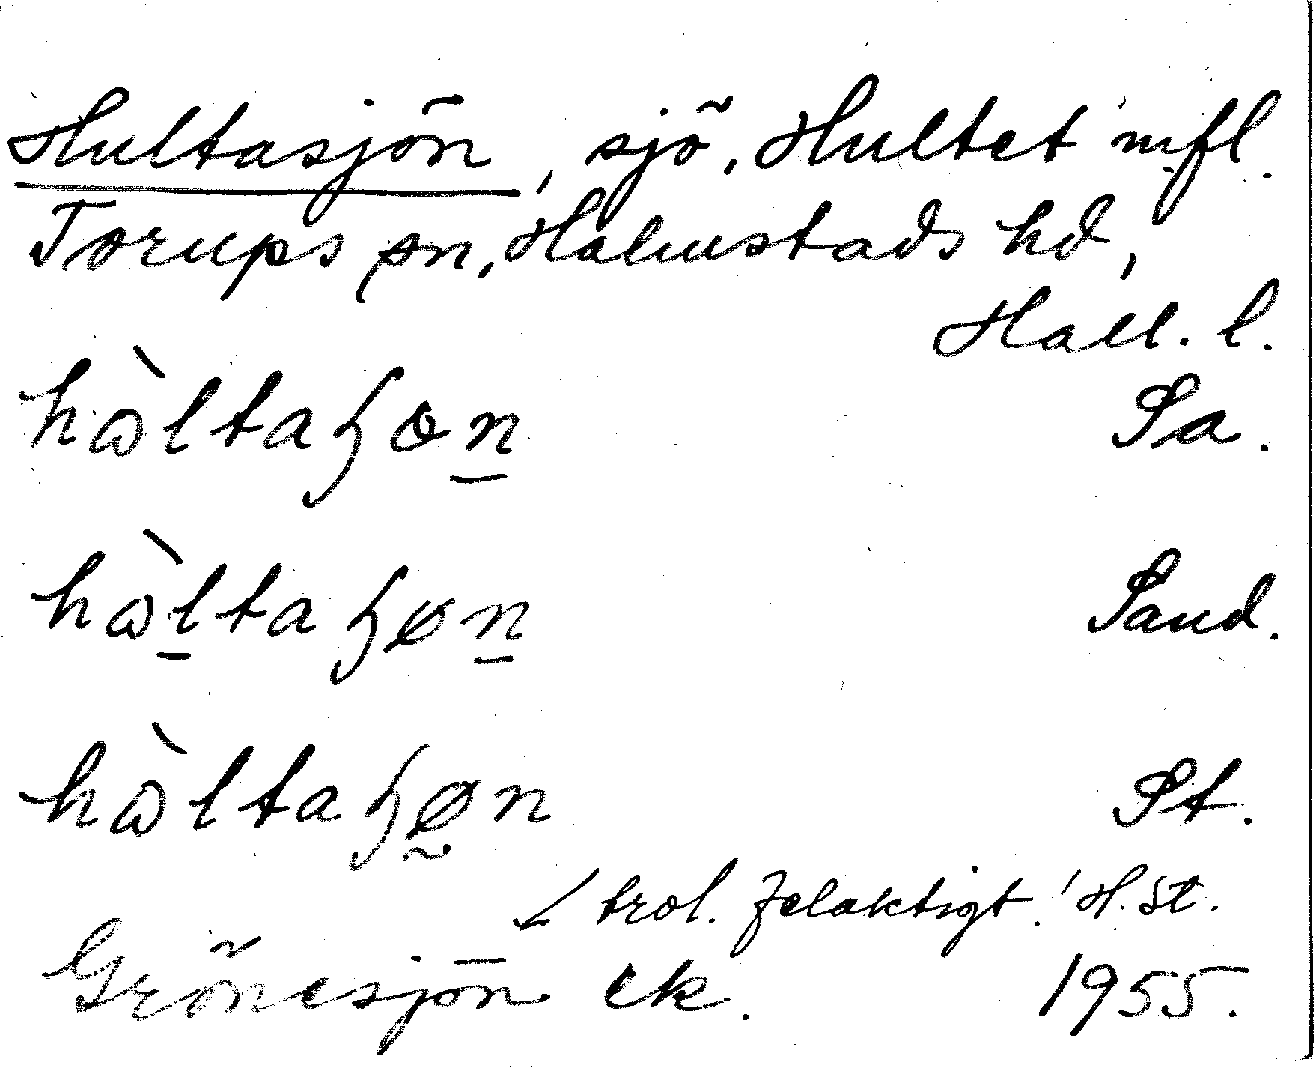 Hultasjön, sjö, Hultet m.fl.
Torups sn, Halmstads hd,
Hall. l.
hὼltaɧɵn̲ Sa.
hὼl̲taɧøn̲ Sand.
hὼltaɧø̰n St.
trol. felaktigt! H. St.
Grönesjön ek. 1955.